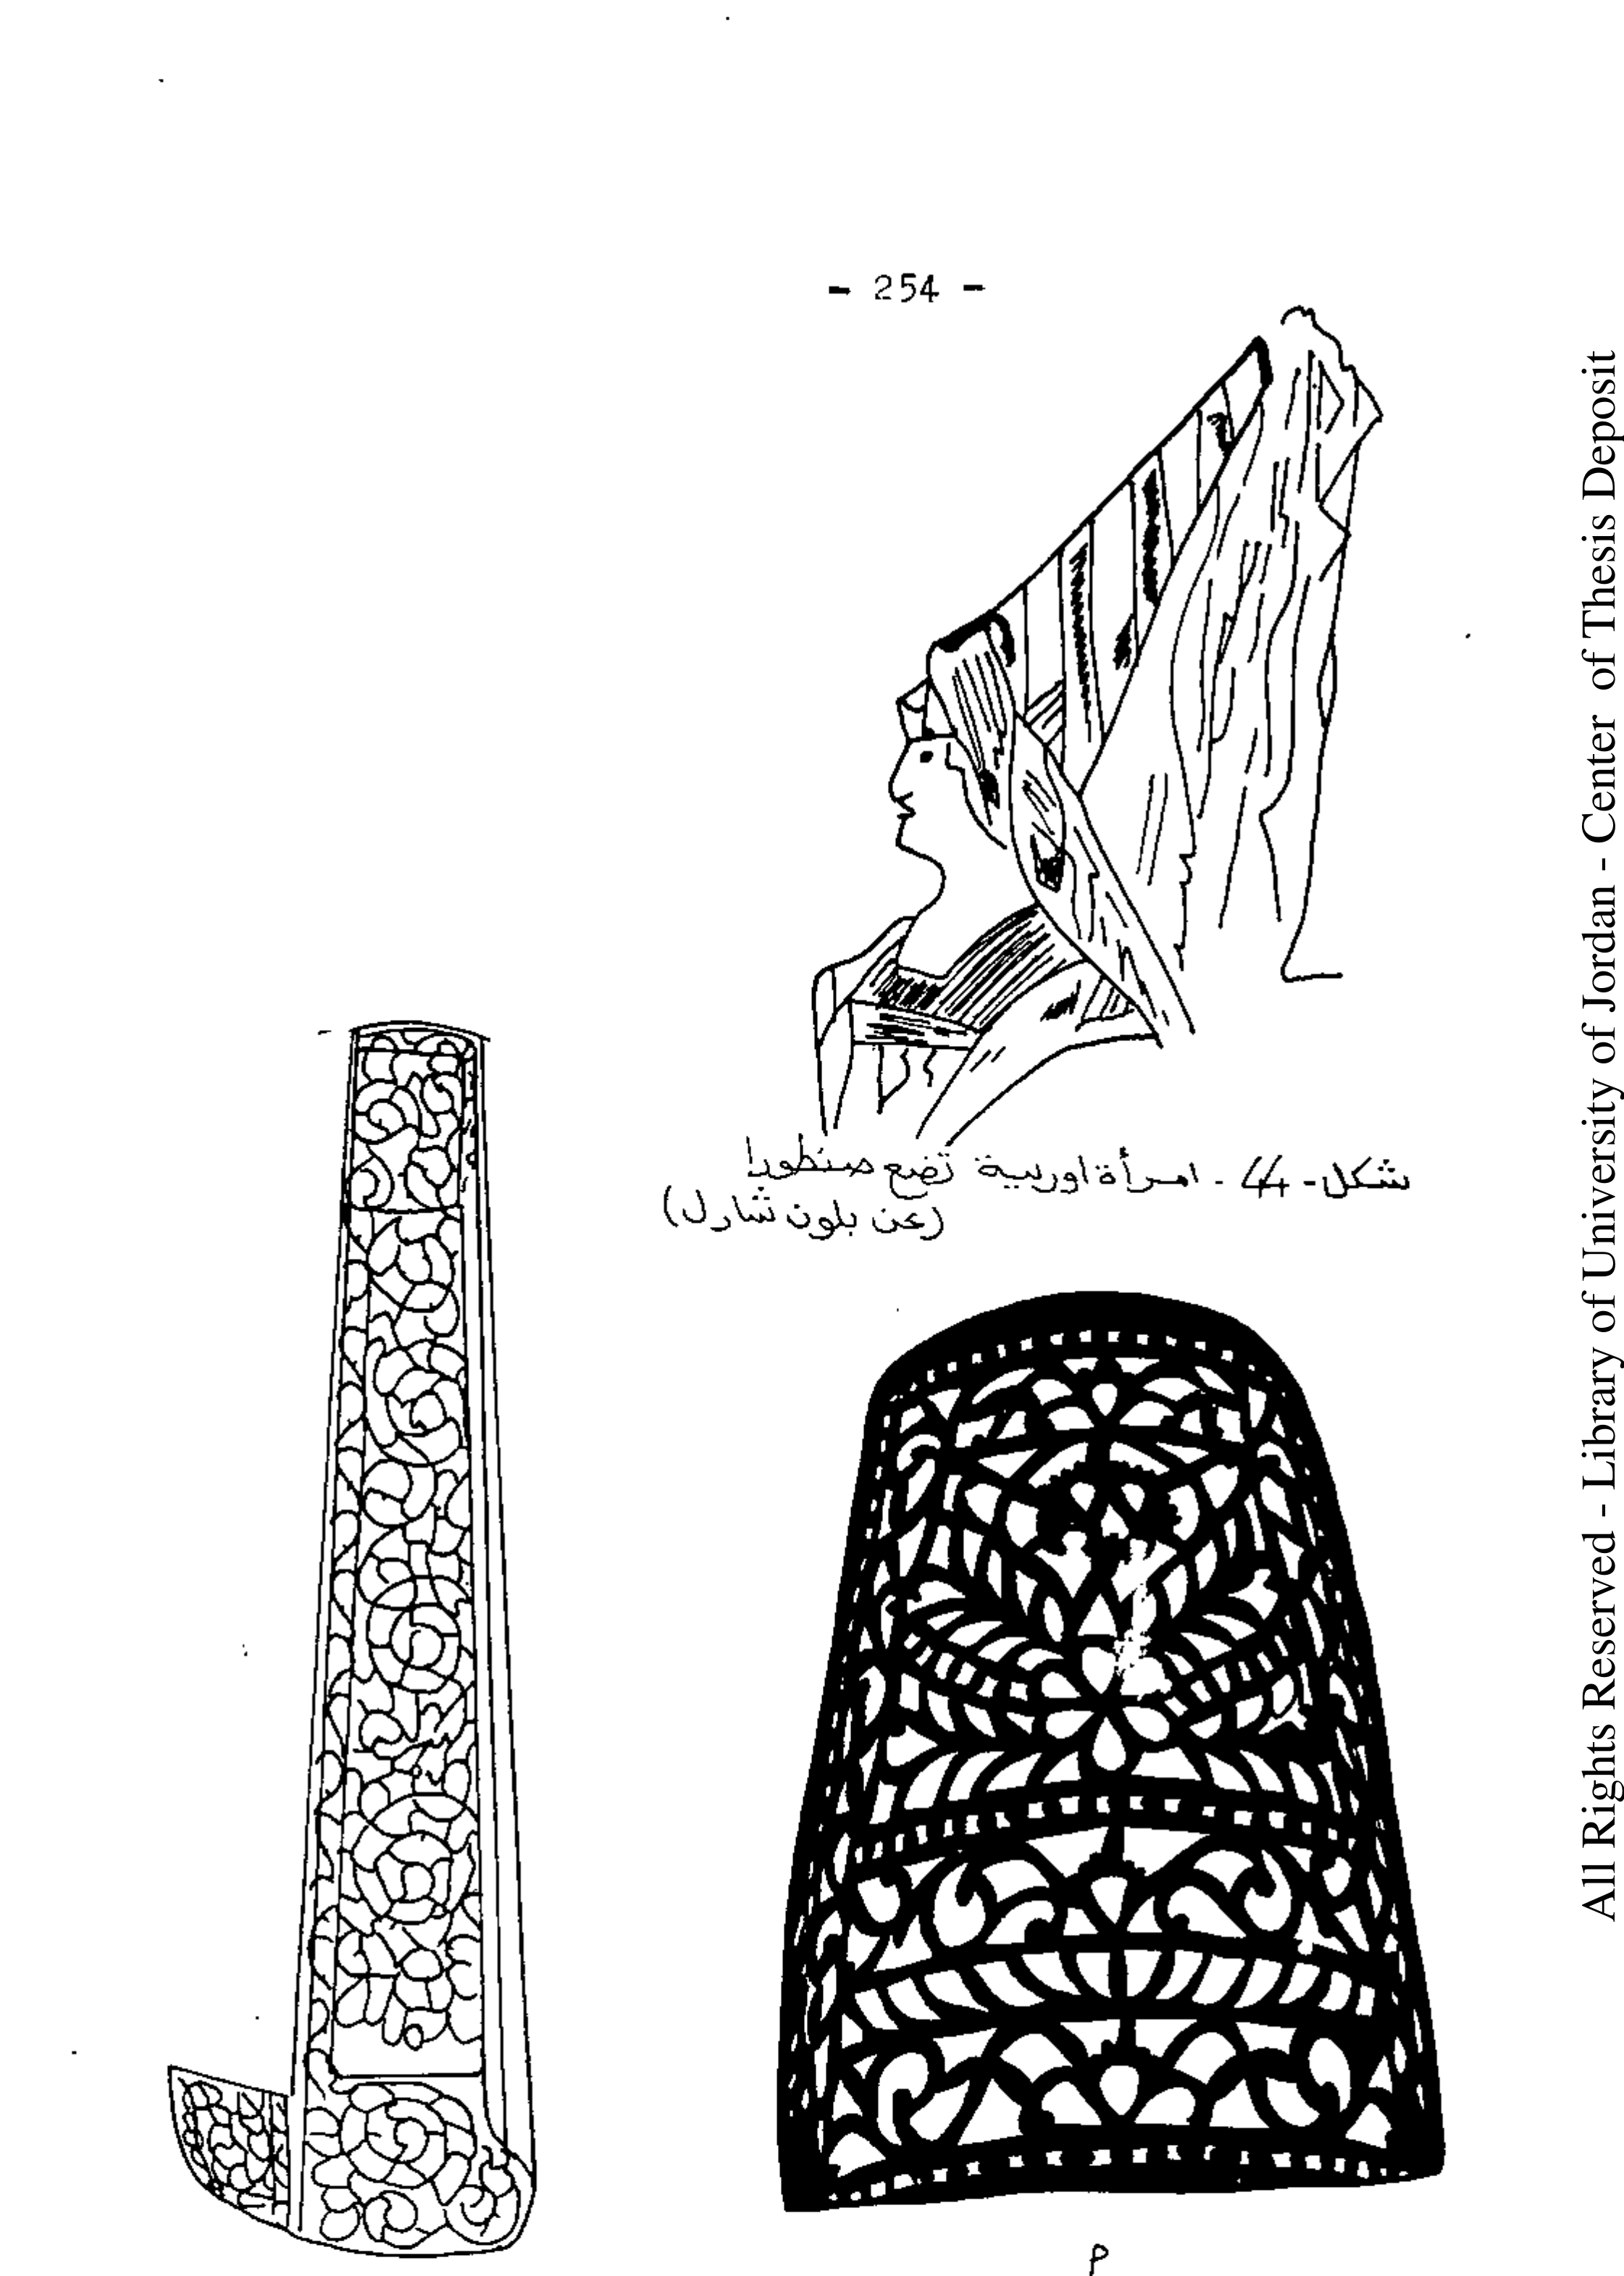 - 254 -
شكل - 44 - امرأة اوربية تضع صنطورا
(عن بلون شارل)
م
All Rights Reserved - Library of University of Jordan - Center of Thesis Deposit